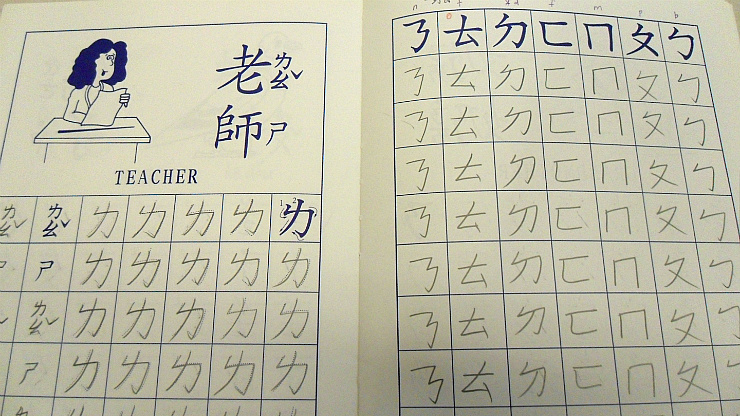 老ㄌㄠˇ
師ㄕ
TEACHER
ㄌㄠˇ ㄌㄠˇ ㄌ ㄌ ㄌ ㄌ ㄌ
ㄕ ㄕ ㄌ ㄌ ㄌ ㄌ ㄌ
ㄌㄠˇ ㄌ ㄌ ㄌ ㄌ ㄌ
ㄕ ㄌ ㄌ ㄌ ㄌ ㄌ
ㄋ ㄊ ㄉ ㄈ ㄇ ㄆ ㄅ
ㄋ ㄊ ㄉ ㄈ ㄇ ㄆ ㄅ
ㄋ ㄊ ㄉ ㄈ ㄇ ㄆ ㄅ
ㄋ ㄊ ㄉ ㄈ ㄇ ㄆ ㄅ
ㄋ ㄊ ㄉ ㄈ ㄇ ㄆ ㄅ
ㄋ ㄊ ㄉ ㄈ ㄇ ㄆ ㄅ
ㄋ ㄊ ㄉ ㄈ ㄇ ㄆ ㄅ
ㄋ ㄊ ㄉ ㄈ ㄇ ㄆ ㄅ